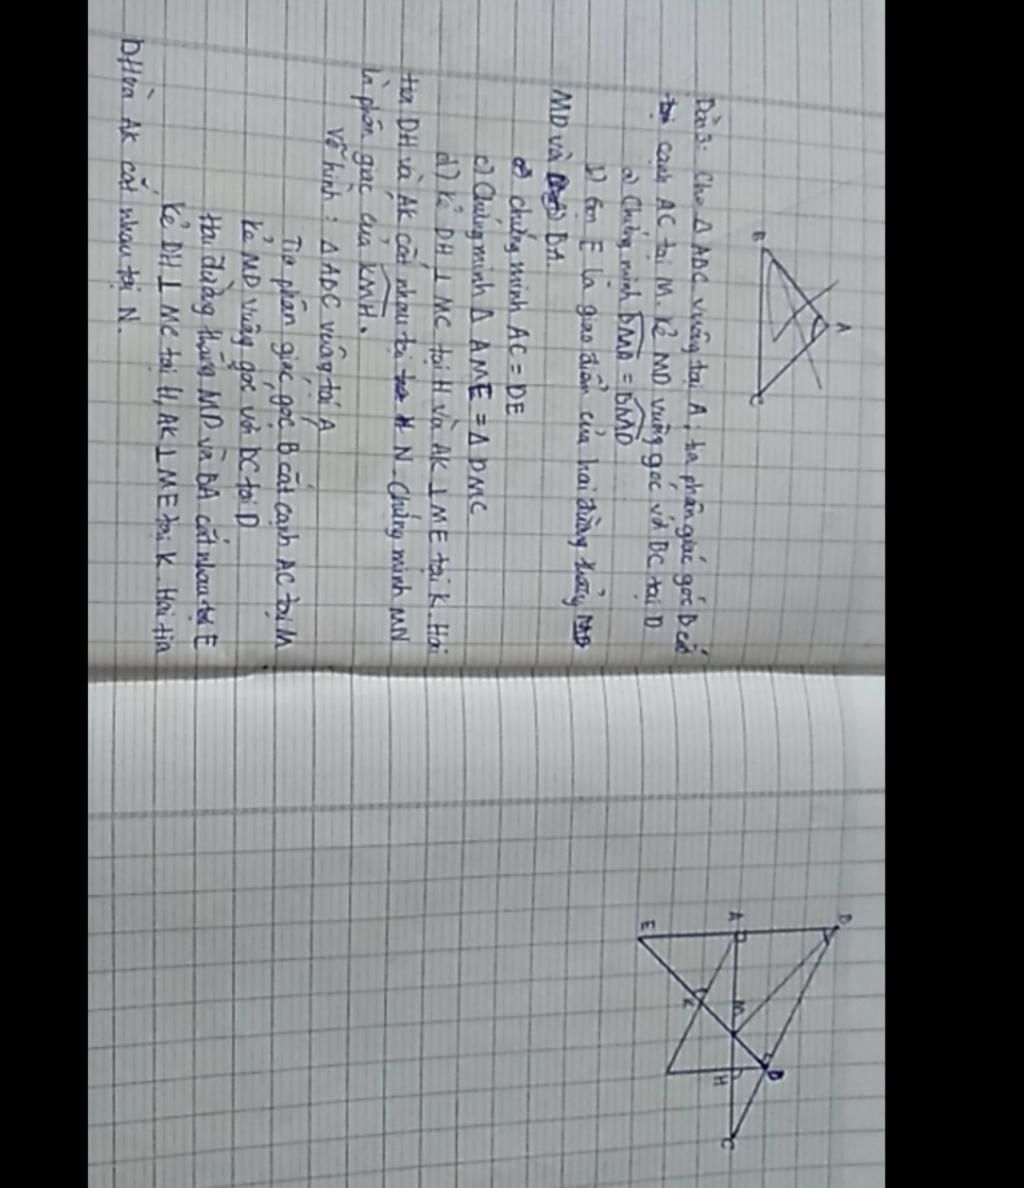 Bài 3: Cho Δ ABC vuông tại A, tia phân giác góc B cắt
cạnh AC tại M. Kẻ MD vuông góc với BC tại D
a) Chứng minh BMA = BMD
b) Gọi E là giao điểm của hai đường thẳng
MD và BA.
chứng minh AC = DE
c) Chứng minh Δ AME = Δ DMC
d) Kẻ DH ⊥ MC tại H và AK ⊥ ME tại K. Hai
tia DH và AK cắt nhau tại N. Chứng minh MN
là phân giác của KMH.
Vẽ hình: Δ ABC vuông tại A
Tia phân giác góc B cắt cạnh AC tại M
Kẻ MD vuông góc với BC tại D
Hai đường thẳng MD và BA cắt nhau tại E
Kẻ DH ⊥ MC tại H, AK ⊥ ME tại K. Hai tia
DH và AK cắt nhau tại N.
A
B
C
B
A
E
M
K
D
H
C